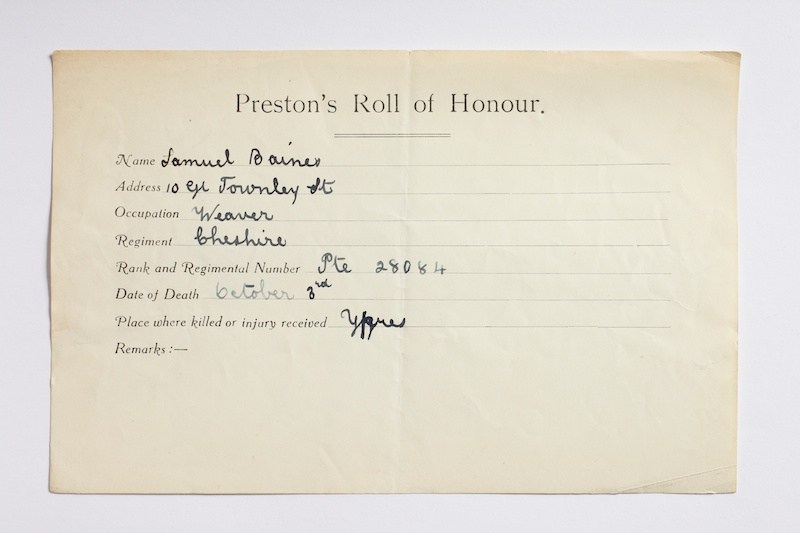 Preston's Roll of Honour.
Name Samuel Baines
Address 10 Gt Townley St
Occupation Weaver
Regiment Cheshire
Rank and Regimental Number Pte 28084
Date of Death October 3rd
Place where killed or injury received Ypres
Remarks :—